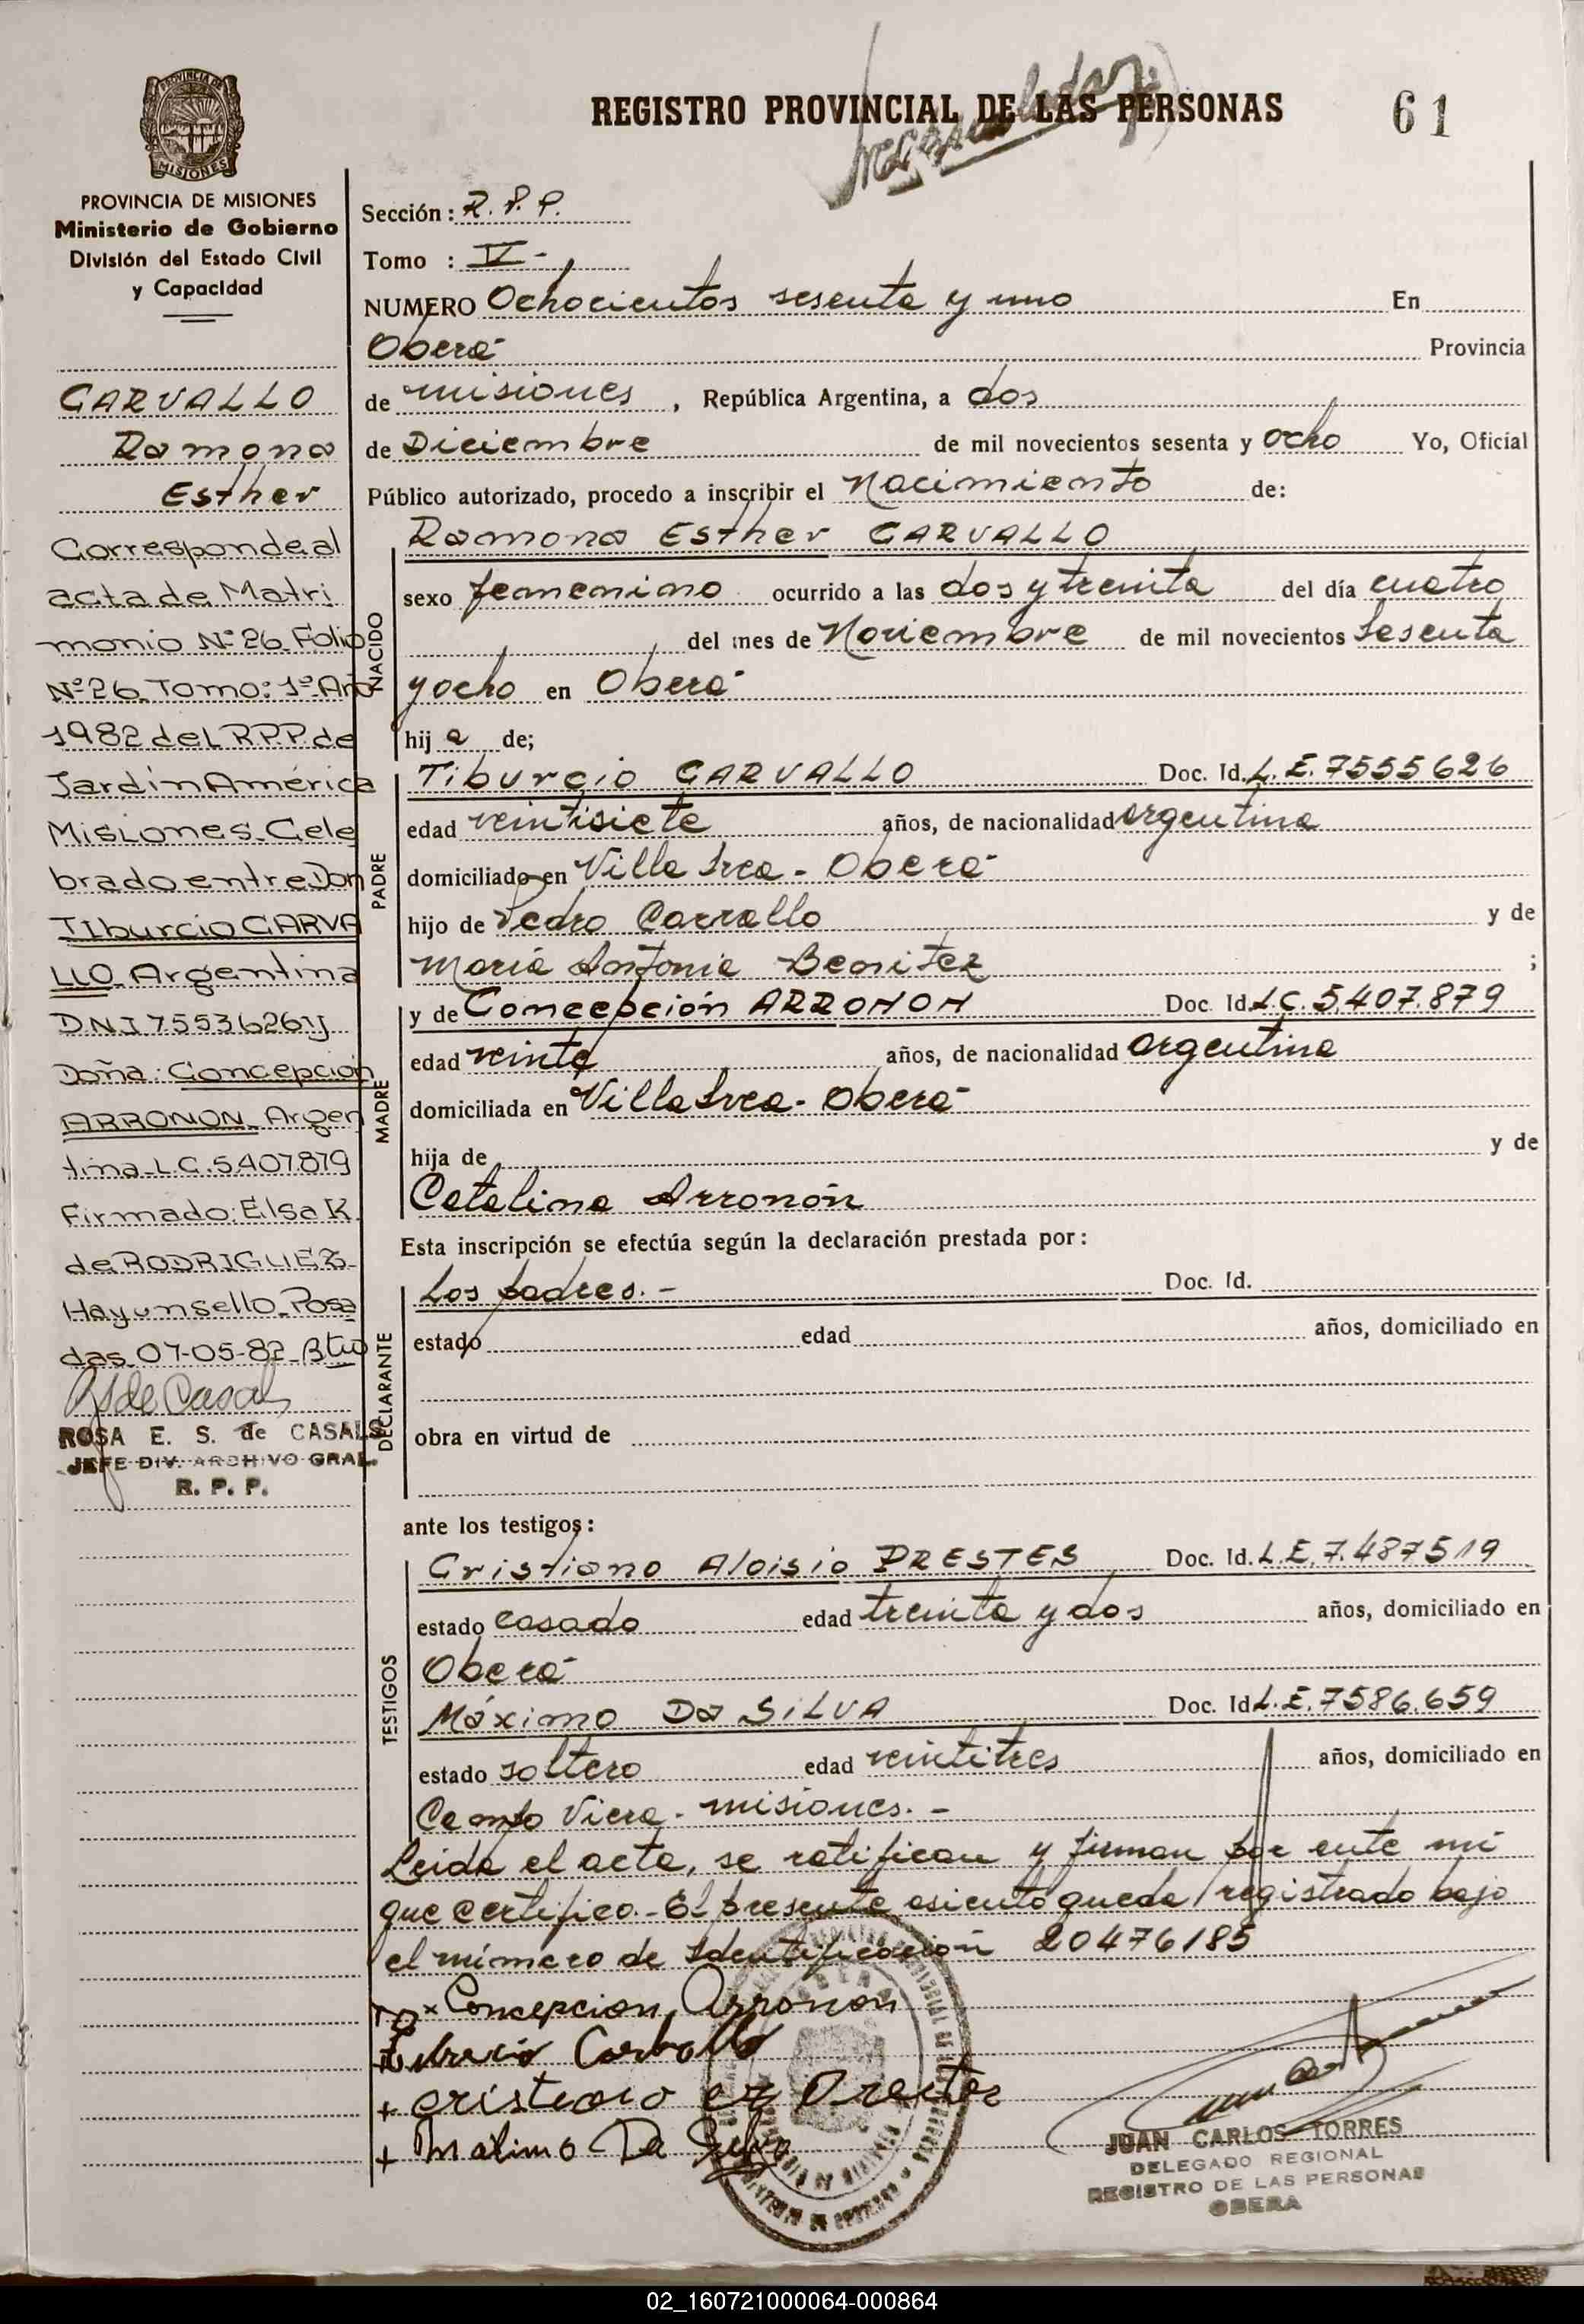 REGISTRO PROVINCIAL DE LAS PERSONAS
61
PROVINCIA DE
MISIONES
PROVINCIA DE MISIONES
Ministerio de Gobierno
División del Estado Civil
y Capacidad
CARVALLO
Ramona
Esther
Corresponde al
acta de Matri
monio Nº 26 Folio
Nº 26 Tomo: 1º Año
1982 del R.P.P. de
Jardín América
Misiones. Cele
brado entre Don
Tiburcio CARVA
LLO Argentina
D.N.I 7553626 y
Doña: Concepción
ARRONON Argen
tina L.C. 5.407.879
Firmado: Elsa K.
de RODRIGUEZ
Hay un sello Posa
das 07-05-82
RS de Casals
ROSA E. S. de CASALS
JEFE DIV. ARCHIVO GRAL.
R. P. P.
Sección: R. P. P.
Tomo : V -
NUMERO Ochocientos sesenta y uno En
Oberá Provincia
de misiones, República Argentina, a dos
de Diciembre de mil novecientos sesenta y ocho Yo, Oficial
Público autorizado, procedo a inscribir el Nacimiento de:
Ramona Esther CARVALLO
NACIDO
sexo femenino ocurrido a las dos y treinta del día cuatro
del mes de Noviembre de mil novecientos sesenta
y ocho en Oberá
hij a de;
PADRE
Tiburcio CARVALLO Doc. Id. L. E. 7555626
edad veintisiete años, de nacionalidad argentina
domiciliado en Villa Svea - Oberá
hijo de Pedro Carvallo y de
María Antonia Benitez ;
MADRE
y de Concepción ARRONON Doc. Id. L.C. 5.407.879
edad veinte años, de nacionalidad argentina
domiciliada en Villa Svea - Oberá
hija de y de
Catalina Arronón
Esta inscripción se efectúa según la declaración prestada por:
DECLARANTE
Los padres. - Doc. Id.
estado edad años, domiciliado en
obra en virtud de
ante los testigos:
TESTIGOS
Cristiano Aloisio PRESTES Doc. Id. L.E. 7.487519
estado casado edad treinta y dos años, domiciliado en
Oberá
Máximo Da SILVA Doc. Id. L.E. 7586.659
estado soltero edad veintitres años, domiciliado en
Campo Viera - misiones. -
Leida el acta, se ratifican y firman por ante mi
que certifico.- El presente asiento queda registrado bajo
el número de Identificación 20476185
x Concepcion Arronon
Carballo
+
+ Da Silva
JUAN CARLOS TORRES
DELEGADO REGIONAL
REGISTRO DE LAS PERSONAS
OBERA
02_160721000064-000864